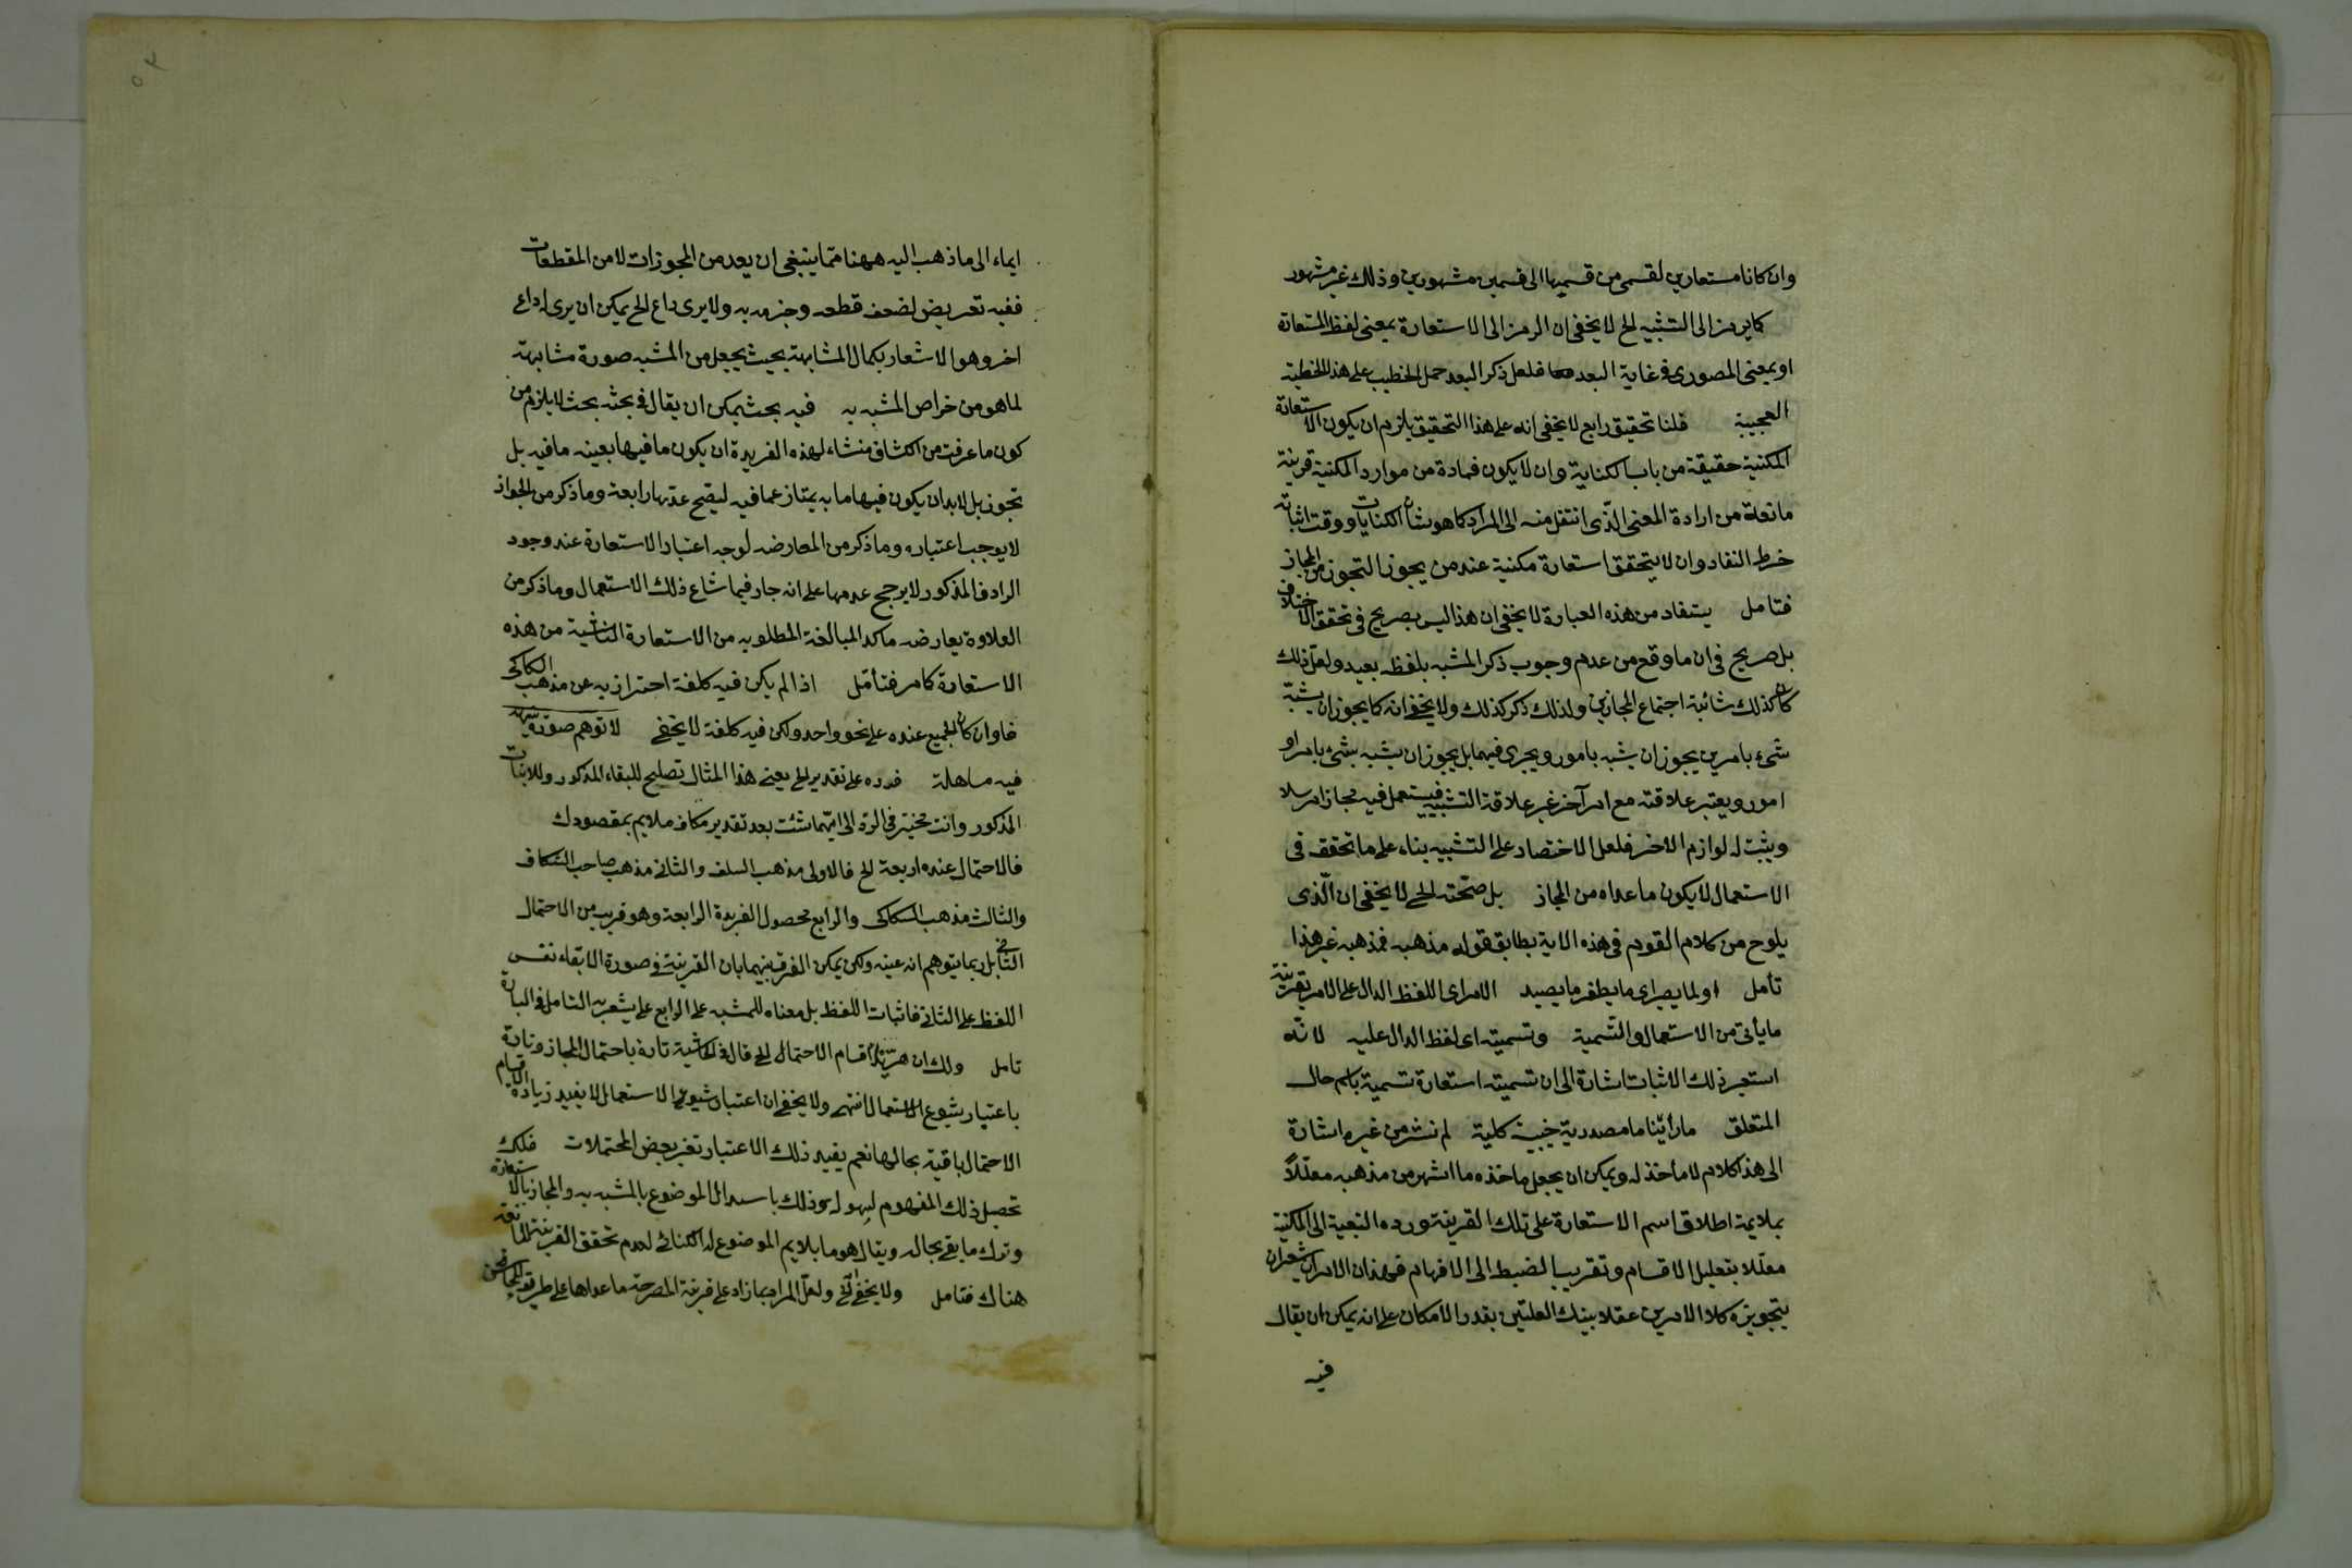 وان كانا مستعارين لقسمى من قسيمها الى قسمين مشهورين وذلك غير مشهور
كما يرمز الى التشبيه الخ لا يخفى ان الرمز الى الاستعارة بمعنى لفظ المستعارة
او بمعنى المصورى فى غاية البعد فلعل ذكر البعد حمل الخطيب على هذا الخطبة
العجيبة قلنا تحقيق رابع لا يخفى انه على هذا التحقيق يلزم ان يكون الاستعارة
المكنية حقيقة من باب الكناية وان لا يكون فى مادة من موارد المكنية قرينة
مانعة من ارادة المعنى الّذى انتقل منه الى المراد كما هو شان الكنايات ووقت اثباته
خرط القتاد وان لا يتحقق استعارة مكنية عند من يجوز التجوز من المجاز
فتامل يستفاد من هذه العبارة لا يخفى ان هذا ليس بصريح فى تحقق الاختلاف
بل صريح فى ان ما وقع من عدم وجوب ذكر المشبه بلفظه بعيد ولعل ذلك
كان كذلك شائبة اجتماع المجازين ولذلك ذكر كذلك ولا يخفى انه كما يجوز ان يشبّه
شىء بامرين يجوز ان يشبه بامور ويجرى فيها بل يجوز ان يشبه بشىء بامر او
امور ويعتبر علاقته مع امر آخر غير علاقة التشبيه فيستعمل فيه مجازا مرسلا
ويثبت له لوازم الاخر فلعل الاختصار على التشبيه بناء على ما تحقق فى
الاستعمال لا يكون ما عداه من المجاز بل صحّته الخ لا يخفى ان الّذى
يلوح من كلام القوم فى هذه الاية يطابق قوله مذهبه فمذهبه غير هذا
تأمل او لما يصير اى ما يظفر ما يصيد الامر اى اللفظ الدال على الامر بقرينة
ما يأتى من الاستعمال والتّسمية وتسميته اى لفظ الدال عليه لانّه
استعير ذلك الاثبات اشارة الى ان تسميته استعارة تسمية باسم حال
المتعلق ما رأيّنا ما مصدرية خبية كلية لم نشر من غيره اشارة
الى هذا كلام لا مأخذ له ويمكن ان يجعل ماخذه ما اشهر من مذهبه معلّلاً
بملايمة اطلاق اسم الاستعارة على تلك القرينة ورده التبعية الى المكنية
معلّلا بتعليل الاقسام وتقريبا لضبط الى الافهام فهذان الامران يشعران
بتجويزه كلا الامرين عقلا بينك العلتين بقدر الامكان على انه يمكن ان يقال
فيه
ايماء الى ما ذهب اليه ههنا مما ينبغى ان يعد من المجوزات لا من المقطعات
ففيه تعريض لضعف قطعه وجزمه به ولا يرى داع الخ يمكن ان يرى له داع
اخر وهو الاشعار بكمال المشابهة بحيث يجعل من المشبه صورة مشابهة
لما هو من خواص المشبه به فيه بحث يمكن ان يقال فى بحثه بحث لا يلزم من
كون ما عرفت من الكشاف منشاء لهذه الفريدة ان يكون ما فيها بعينه ما فيه بل
تجوز بل لا بد ان يكون فيها ما به يمتاز عما فيه ليصح عدّها رابعة وما ذكر من الجواز
لا يوجب اعتباره وما ذكر من المعارضه لوجه اعتبار الاستعارة عند وجود
الرادف المذكور لا يرجح عدمها على انه جار فيما شاع ذلك الاستعمال وما ذكر من
العلاوة يعارضه ماكد المبالغة المطلوبه من الاستعارة الناشية من هذه
الاستعارة كما مر فتأمّل اذا لم يكن فيه كلفة احتراز به عن مذهب السكاكى
فاوان كان الجميع عنده على نحو واحد ولكن فيه كلفة لا يخفى لا توهم صورة
فيه مساهلة فرده على تقدير الخ يعنى هذا المثال تصلح للبقاء المذكور وللاثبات
المذكور وانت مخيّر فى الردّ الى ايّهما شئت بعد تقدير مكاف ملايم بمقصودك
فالاحتمال عنده اربعة الخ فالاولى مذهب السلف والثانى مذهب صاحب الكشاف
والثالث مذهب السكاكى والرابع محصول الفريدة الرابعة وهو قريب من الاحتمال
الثانى بل ربما يتوهم انه عينه ولكن يمكن الفرق بينهما بان القرينة فى صورة الابقاء نفس
اللفظ على الثانى فاثبات اللفظ بل معناه للمشبه على الرابع على يشعر به التامل فى العبارة
تامل ولك ان اقسام الاحتمال الخ قال فى الحاشية تارة باحتمال المجاز وتارة
باعتبار شيوع الاستعمال انتهى ولا يخفى ان اعتبار شيوع الاستعمال لا يفيد زيادة الاقسام
الاحتمال باقية بحالها نعم يفيد ذلك الاعتبار تغير بعض المحتملات فلك
تحصيل ذلك المفهوم لسهوله وذلك الموضوع بالمشبه به والمجاز بالاستعارة
وترك ما بقى بحاله ويقال هو ما يلايم الموضوع له الكنائى لعدم تحقق القرينة المانعة
هناك فتامل ولا يخفى الخ ولعل المراد بما زاد على قرينة المصرحة ما عداها على طريق